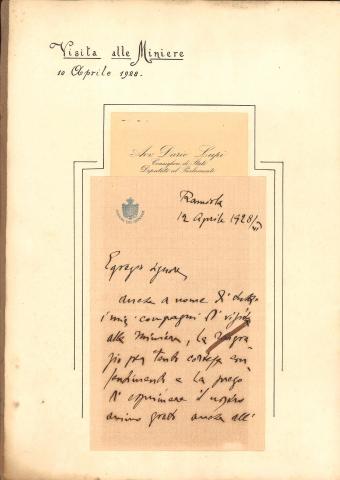 Visita alle Miniere
10 Aprile 1928.
Avv. Dario Lupi
Consigliere di Stato
Deputato al Parlamento
12 Aprile 1928/VI
Egregio Signore,
anche a nome di
i miei compagni di visita
alla miniera, La ringra-
zio per tanto cortese
e La prego
di esprimere il nostro
animo grato anche all'